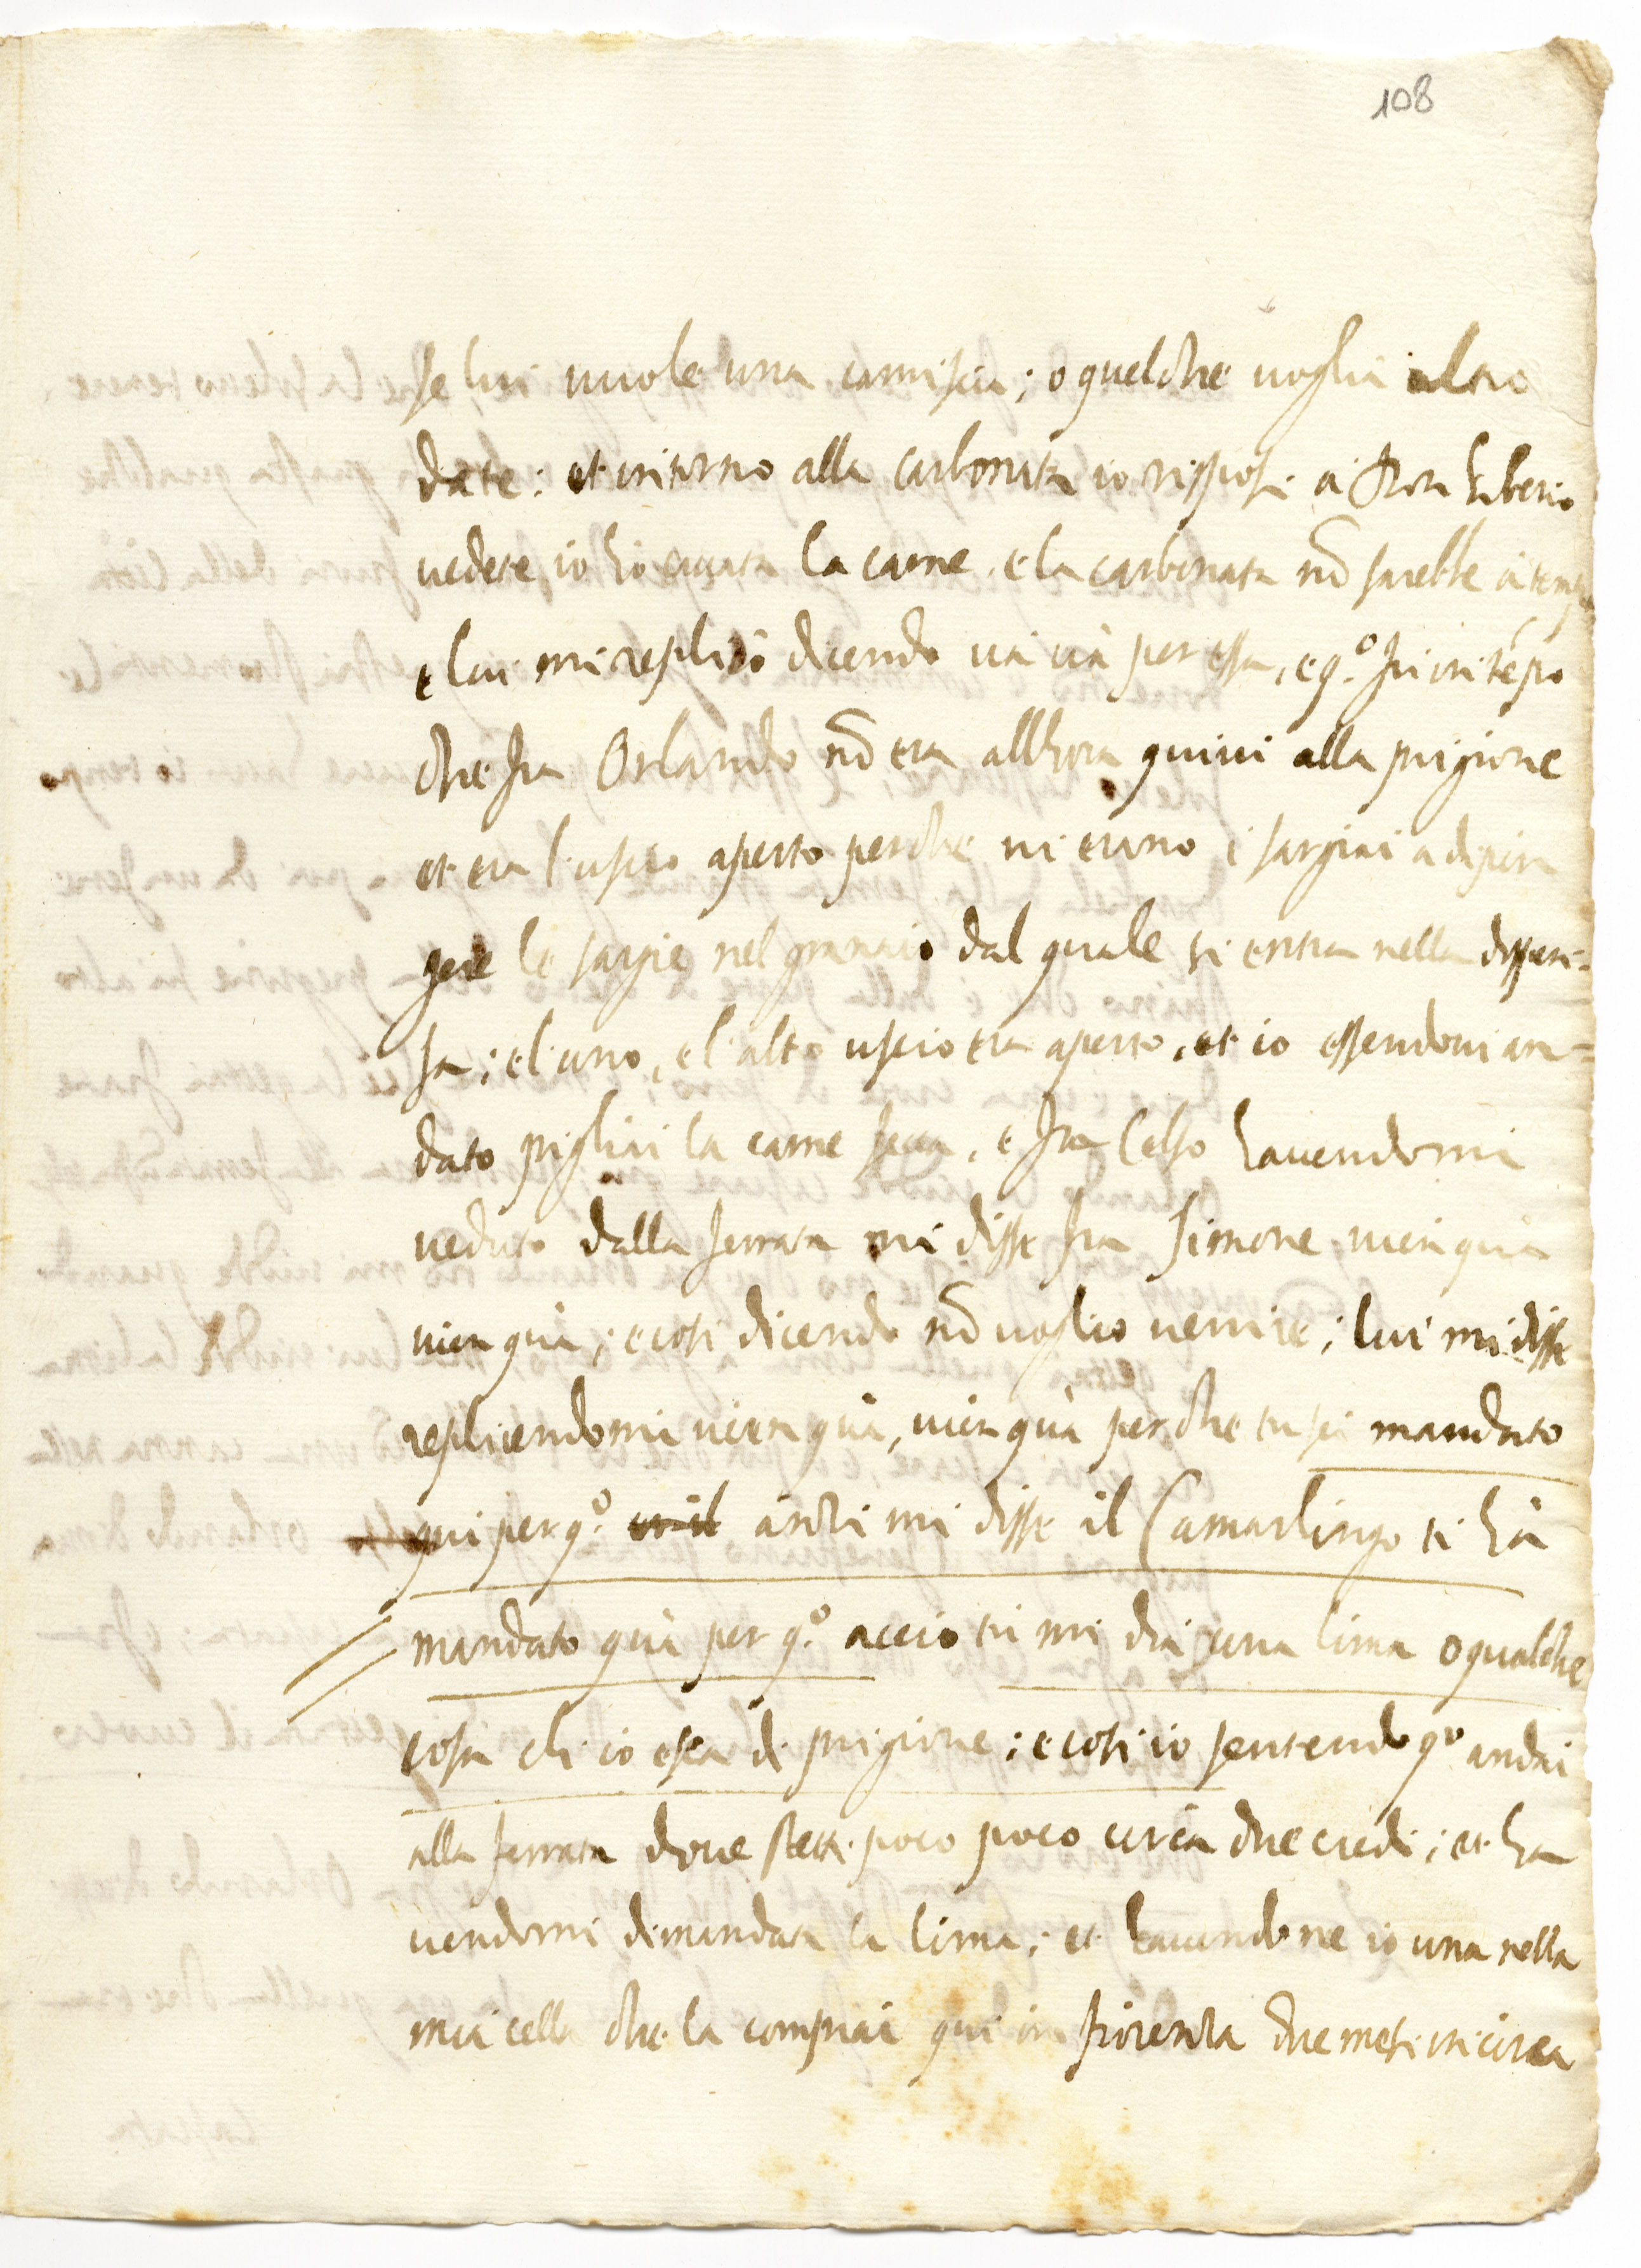 108
se lui vuole una camiscia; o quelche voglia altro
date: et intorno alla carbonata io rispiosi a Don Liberio
vedete io ho cavata la carne, e la carbonata nō sarebbe à temp
e lui mi replicò dicendo va via per essa, e q.º fu in tēpo
che fra Orlando nō era allhora quivi alla prigione
et era l'uscio aperto perche vi erano i sargiai a dipin
gere le sargie nel granaio dal quale si entra nella dispen=
sa; e l'uno, e l'altro uscio era aperto, et io essendovi an=
dato pigliai la carne secca, e fra Celso havendomi
veduto dalla ferrata mi disse fra Simone vien quà
vien quà; e cosi dicendo nō voglio venire; lui mi disse
replicendomi vien quà, vien quà perche tu sei mandato
qui per q.º anzi mi disse il Camarlingo ti hà
mandato quà per q.º accio tu mi dia una lima o qualche
cosa ch'io esca di prigione; e cosi io sentendo q.º andai
alla ferrata dove stetti poco poco circa due credi; et ha
vendomi dimandata la lima; et havendone io una nella
mia cella che la comprai qui in fiorenza due mesi in circa